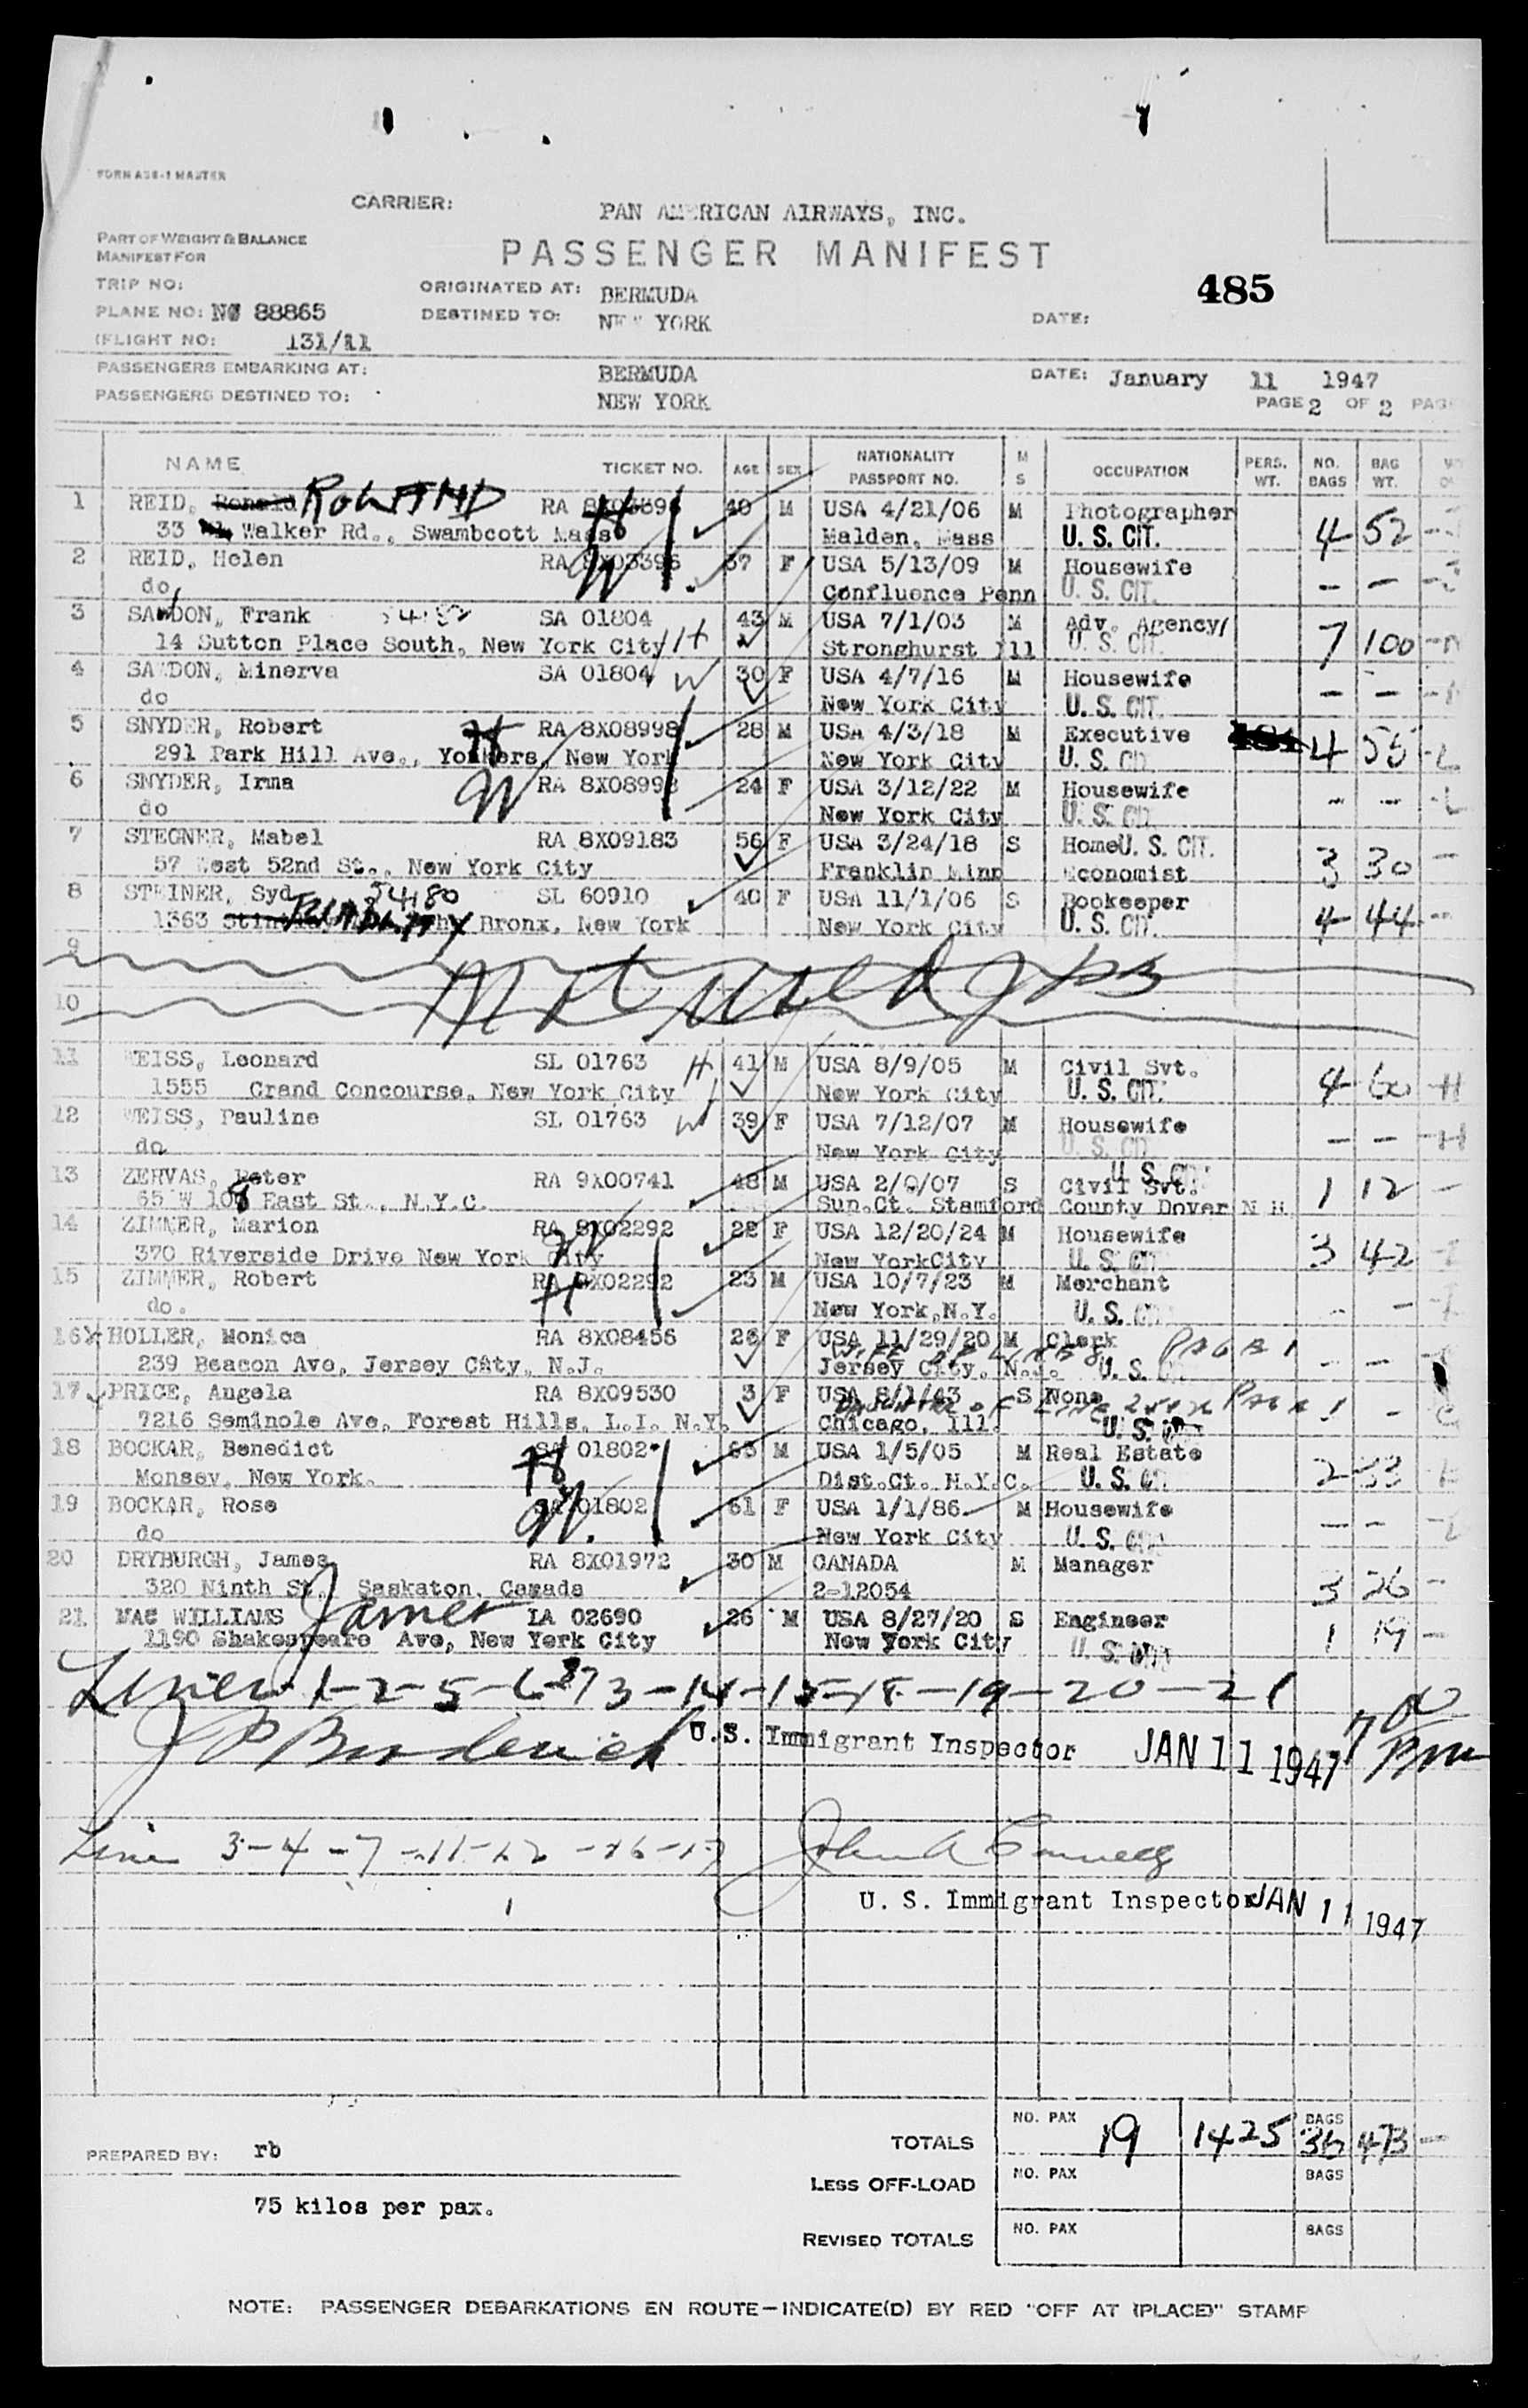 FORM A38-1 MASTER
CARRIER: PAN AMERICAN AIRWAYS, INC.
PART OF WEIGHT & BALANCE
MANIFEST FOR
PASSENGER MANIFEST
TRIP NO:
ORIGINATED AT: BERMUDA
485
PLANE NO: NC 88865
DESTINED TO: NEW YORK
DATE:
FLIGHT NO: 131/11
PASSENGERS EMBARKING AT: BERMUDA
DATE: January 11 1947
PASSENGERS DESTINED TO: NEW YORK
PAGE 2 OF 2 PAG
NAME TICKET NO. AGE SEX NATIONALITY PASSPORT NO. M S OCCUPATION PERS. WT. NO. BAGS BAG WT.
1 REID, Ronald ROLAND RA 8X03396 H 40 M USA 4/21/06 M Photographer
33 Walker Rd., Swambcott Mass Malden, Mass U. S. CIT. 4 52
2 REID, Helen RA 8X03396 W 37 F USA 5/13/09 M Housewife
do Confluence Penn U. S. CIT. - -
3 SANDON, Frank SA 01804 43 M USA 7/1/03 M Adv. Agency
14 Sutton Place South, New York City H Stronghurst Ill U. S. CIT. 7 100
4 SANDON, Minerva SA 01804 W 30 F USA 4/7/16 M Housewife
do New York City U. S. CIT. - -
5 SNYDER, Robert H RA 8X08998 28 M USA 4/3/18 M Executive
291 Park Hill Ave., Yonkers, New York New York City U. S. CIT. 4 55
6 SNYDER, Irma W RA 8X08998 24 F USA 3/12/22 M Housewife
do New York City U. S. CIT. - -
7 STEGNER, Mabel RA 8X09183 56 F USA 3/24/18 S Home U. S. CIT.
57 West 52nd St., New York City Franklin Minn Economist 3 30 -
8 STEINER, Syd 54180 SL 60910 40 F USA 11/1/06 S Bookeeper
1363 Bronx, New York New York City U. S. CIT. 4 44 -
9
Not used
10
11 WEISS, Leonard SL 01763 H 41 M USA 8/9/05 M Civil Svt.
1555 Grand Concourse, New York City New York City U. S. CIT. 4 60 H
12 WEISS, Pauline SL 01763 W 39 F USA 7/12/07 M Housewife
do New York City U. S. CIT. - - H
13 ZERVAS, Peter RA 9X00741 48 M USA 2/9/07 S Civil Svt. U. S. CIT.
65 W 108 East St., N.Y.C. Sup.Ct. Stamford County Dover N H 1 12 -
14 ZIMMER, Marion RA 8X02292 W 22 F USA 12/20/24 M Housewife
370 Riverside Drive New York City New YorkCity U. S. CIT 3 42
15 ZIMMER, Robert RA 8X02292 H 23 M USA 10/7/23 M Merchant
do. New York,N.Y. U. S. CIT - -
16 HOLLER, Monica RA 8X08456 26 F USA 11/29/20 M Clerk
WIFE OF LINE 8 PAGE 1
239 Beacon Ave, Jersey City, N.J. Jersey City, N.J. U. S. CIT - -
17 PRICE, Angela RA 8X09530 3 F USA 8/1/43 S None
DAUGHTER OF LINE PAGE 1
7216 Seminole Ave, Forest Hills, L.I. N.Y. Chicago, Ill. U. S. CIT
18 BOCKAR, Benedict H SA 01802 63 M USA 1/5/05 M Real Estate
Monsey, New York. Dist.Ct. N.Y.C. U. S. CIT 2 33
19 BOCKAR, Rose W. SA 01802 61 F USA 1/1/86 M Housewife
do New York City U. S. CIT - -
20 DRYBURGH, James RA 8X01972 30 M CANADA M Manager
320 Ninth St., Saskaton, Canada 2-12054 3 26 -
21 MAC WILLIAMS James IA 02690 26 M USA 8/27/20 S Engineer
1190 Shakespeare Ave, New York City New York City U. S. CIT 1 19 -
Lines 1-2-5-6-8-13-14-15-18-19-20-21
J P Broderick U.S. Immigrant Inspector JAN 11 1947 7 PM
Line 3-4-7-11-12-16-17 John A
U. S. Immigrant Inspector JAN 11 1947
TOTALS NO. PAX 19 1425 BAGS 36 473 -
PREPARED BY: rb
LESS OFF-LOAD NO. PAX BAGS
75 kilos per pax.
REVISED TOTALS NO. PAX BAGS
NOTE: PASSENGER DEBARKATIONS EN ROUTE—INDICATE(D) BY RED "OFF AT (PLACE)" STAMP